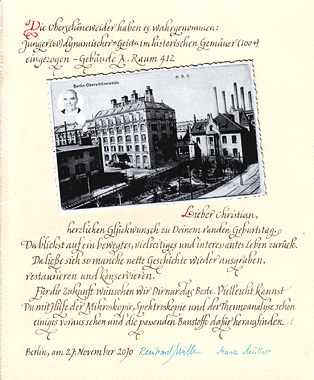 Die Oberschöneweider haben es wahrgenommen:
Junger (60) dynamischer "Geist" im historischen Gemäuer (100+)
eingezogen – Gebäude A, Raum 412
Berlin-Oberschöneweide
Lieber Christian,
herzlichen Glückwunsch zu Deinem runden Geburtstag.
Du blickst auf ein bewegtes, vielseitiges und interessantes Leben zurück.
Da ließe sich so manche nette Geschichte wieder ausgraben,
restaurieren und konservieren.
Für die Zukunft wünschen wir Dir nur das Beste. Vielleicht kannst
Du mit Hilfe der Mikroskopie, Spektroskopie und der Thermoanalyse schon
einiges voraus sehen und die passenden Baustoffe dafür herausfinden.
Berlin, am 27. November 2010